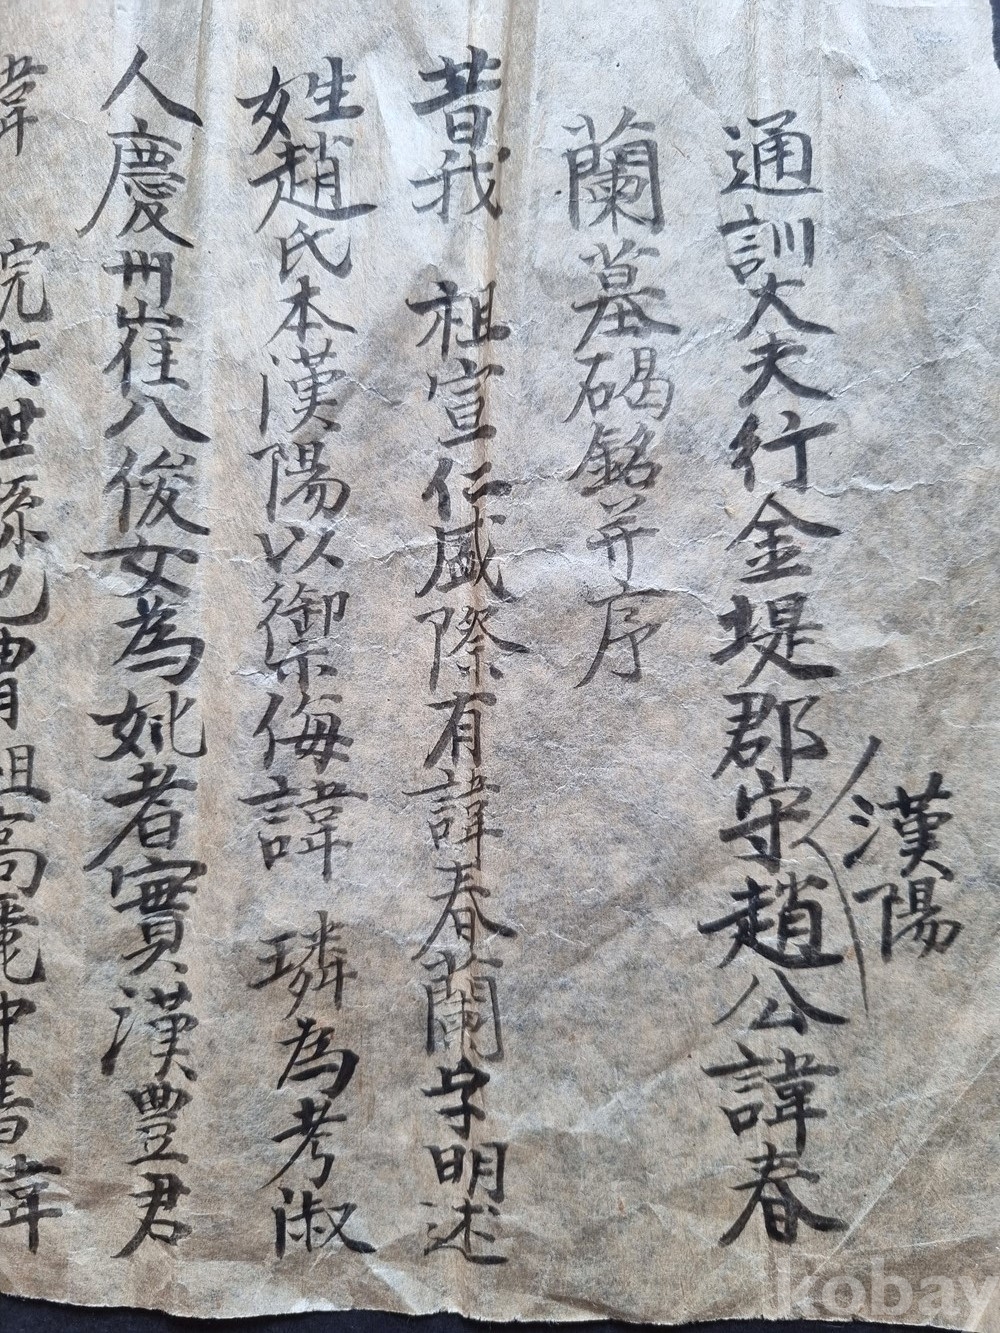 漢陽
通訓大夫行金堤郡守趙公諱春
蘭墓碣銘并序
昔我 祖宣仁盛際有諱春蘭字明述
姓趙氏本漢陽以禦侮諱 璘為考淑
人慶州崔八俊女為妣者實漢豊君
諱 完六世孫也曾祖高麗中書諱
kobay